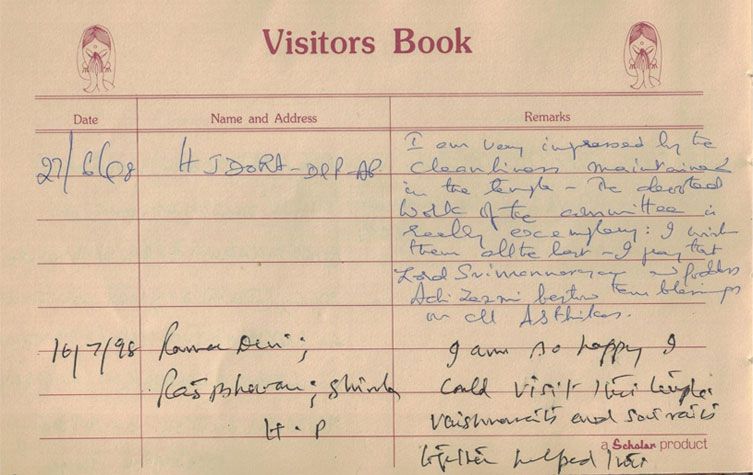 Visitors Book
Date Name and Address Remarks
27/6/98 H J DORA - DGP - AP I am very impressed by the
cleanliness maintained
in the temple - The devoted
work of the committee is
really exemplary: I wish
them all the best - I pray that
Lord Srimannarayan
Adi Laxmi bestow their blessings
on all Asthikas.
16/7/98 Rama Devi; I am so happy I
Raj Bhavan; Shimla could visit this temple
H.P Vaishnavaits and Saivaits
together helped this
a Scholar product